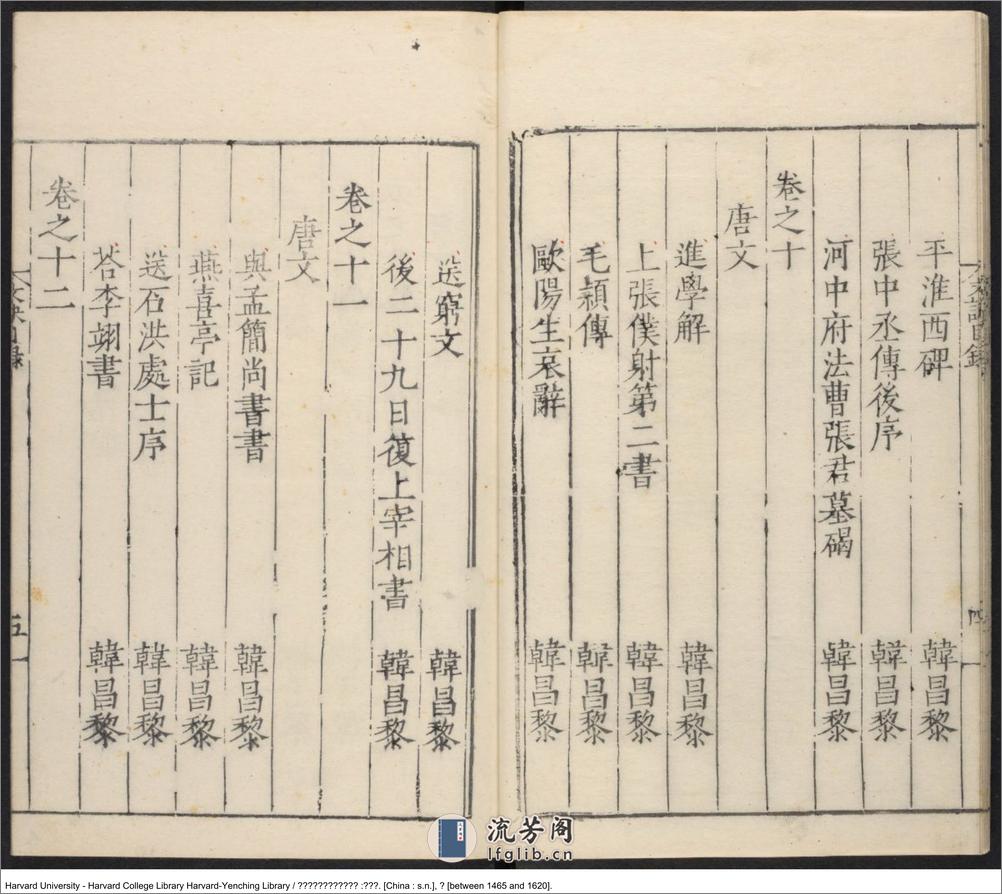 平淮西碑　韓昌黎
張中丞傳後序　韓昌黎
河中府法曹張君墓碣　韓昌黎
卷之十
唐文
進學解　韓昌黎
上張僕射第二書　韓昌黎
毛穎傳　韓昌黎
歐陽生哀辭　韓昌黎
送窮文　韓昌黎
後二十九日復上宰相書　韓昌黎
卷之十一
唐文
與孟簡尚書書　韓昌黎
燕喜亭記　韓昌黎
送石洪處士序　韓昌黎
荅李翊書　韓昌黎
卷之十二
五
流芳阁
lfglib.cn
Harvard University - Harvard College Library Harvard-Yenching Library / ???????????? :???. [China : s.n.], ? [between 1465 and 1620].